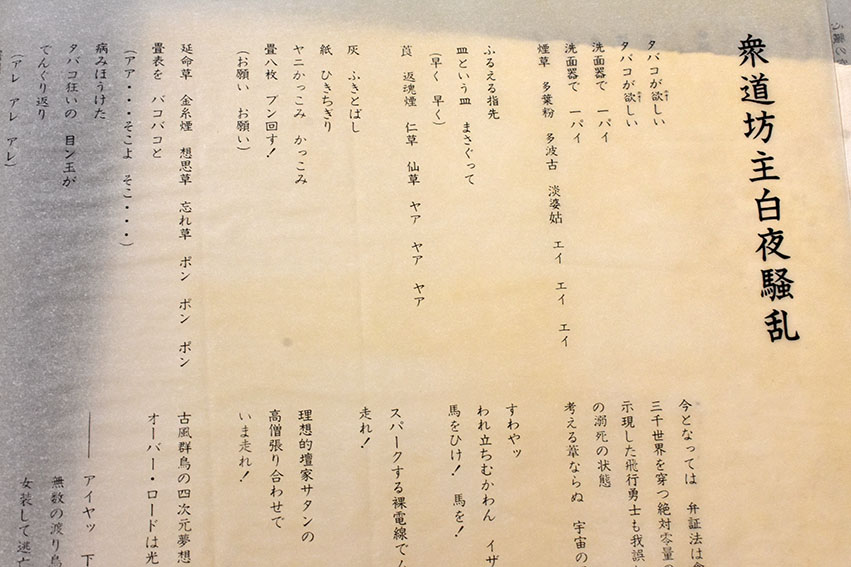 衆道坊主白夜騒乱
タバコが欲しい
タバコが欲しい
洗面器で 一パイ
洗面器で 一パイ
煙草 多葉粉 多波古 淡婆姑 エイ エイ エイ
ふるえる指先
皿という皿 まさぐって
(早く 早く)
莨 返魂煙 仁草 仙草 ヤア ヤア ヤア
灰 ふきとばし
紙 ひきちぎり
ヤニかっこみ かっこみ
畳八枚 ブン回す!
(お願い お願い)
延命草 金糸煙 想思草 忘れ草 ポン ポン ポン
畳表を バコバコと
(アア・・・そこよ そこ・・・)
病みほうけた
タバコ狂いの 目ン玉が
でんぐり返り
(アレ アレ アレ)
今となっては 弁証法は
三千世界を穿つ絶対零量の
示現した飛行勇士も我誤
の溺死の状態
考える葦ならぬ 宇宙の
すわやッ
われ立ちむかわん イザ
馬をひけ! 馬を!
スパークする裸電線で
走れ!
理想的壇家サタンの
高僧張り合わせで
いま走れ!
古風群鳥の四次元夢想
オーバー・ロードは光
―― アイヤッ 下
無数の渡り鳥
女装して逃亡